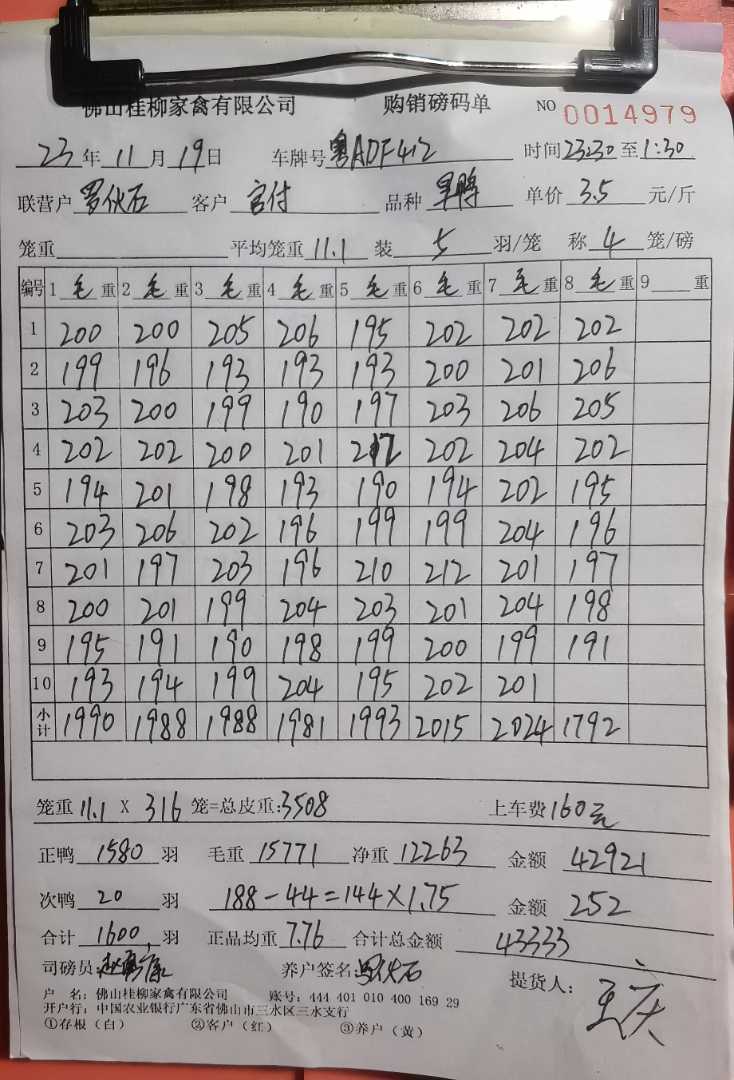 佛山桂柳家禽有限公司 购销磅码单 NO 0014979
23年11月19日 车牌号粤ADF412 时间23:30至1:30
联营户 罗伙石 客户 宫付 品种 旱鸭 单价 3.5 元/斤
笼重 平均笼重 11.1 装 5 羽/笼 称 4 笼/磅
编号 1 毛 重 2 毛 重 3 毛 重 4 毛 重 5 毛 重 6 毛 重 7 毛 重 8 毛 重 9 重
1 200 200 205 206 195 202 202 202
2 199 196 193 193 193 200 201 206
3 203 200 199 190 197 203 206 205
4 202 202 200 201 212 202 204 202
5 194 201 198 193 190 194 202 195
6 203 206 202 196 199 199 204 196
7 201 197 203 196 210 212 201 197
8 200 201 199 204 203 201 204 198
9 195 191 190 198 199 200 199 191
10 193 194 199 204 195 202 201
小计 1990 1988 1988 1981 1993 2015 2024 1792
笼重 11.1 X 316 笼=总皮重:3508 上车费160元
正鸭 1580 羽 毛重 15771 净重 12263 金额 42921
次鸭 20 羽 188-44=144×1.75 金额 252
合计 1600 羽 正品均重 7.76 合计总金额 43333
司磅员: 养户签名 罗伙石 提货人:
户 名: 佛山桂柳家禽有限公司 账号: 444 401 010 400 169 29
开户行: 中国农业银行广东省佛山市三水区三水支行
①存根(白) ②客户(红) ③养户(黄)